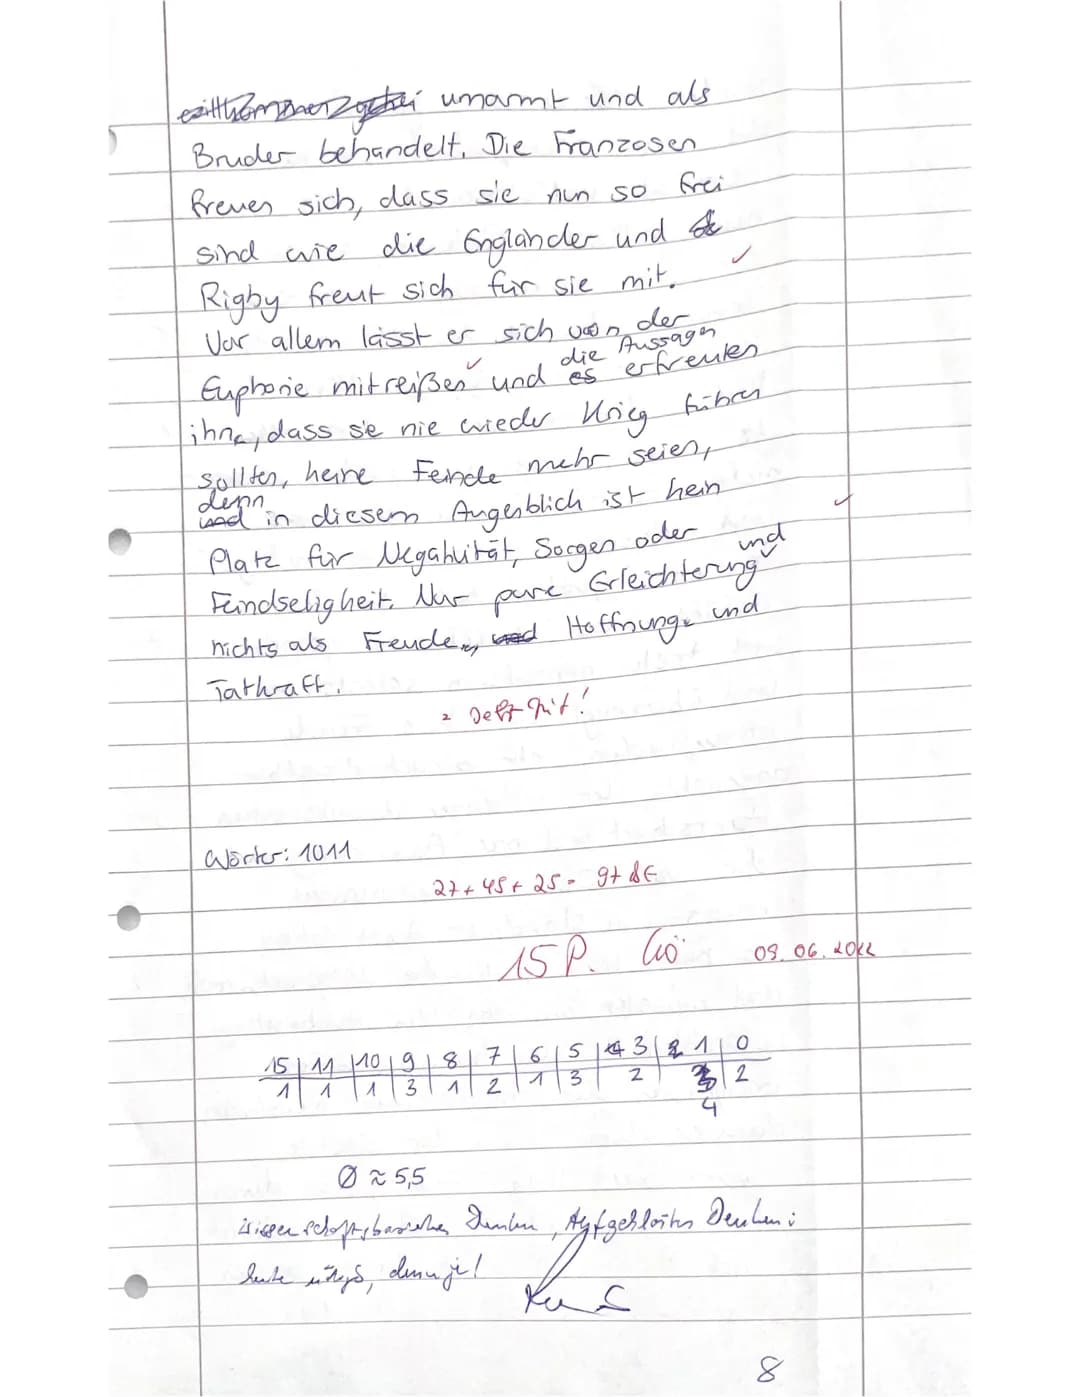 umarmt und als
Bruder behandelt. Die Franzosen
freuen sich, dass sie nun so frei
sind wie die Engländer und
Rigby freut sich für sie mit.
Vor allem lässt er sich von der
Euphorie mitreißen und es die Aussagen erfreuten
ihn, dass sie nie wieder Krieg führen
sollten, keine Feinde mehr seien,
denn
und in diesem Augenblick ist kein
Platz für Negativität, Sorgen oder
Feindseligkeit. Nur pure Erleichterung und
nichts als Freude, und Hoffnung und
Tatkraft.
Wörter: 1011
27 + 45 + 25 = 97 BE
15 P. 09.06.2022
15 | 11 | 10 | 9 | 8 | 7 | 6 | 5 | 4 3 | 2 1 | 0
1 | 1 | 1 | 3 | 1 | 2 | 1 | 3 | 2 | 3 | 2
4
Ø ≈ 5,5
Denken, Aufgeklärtes Denken:
heute nötiger, denn je!
8